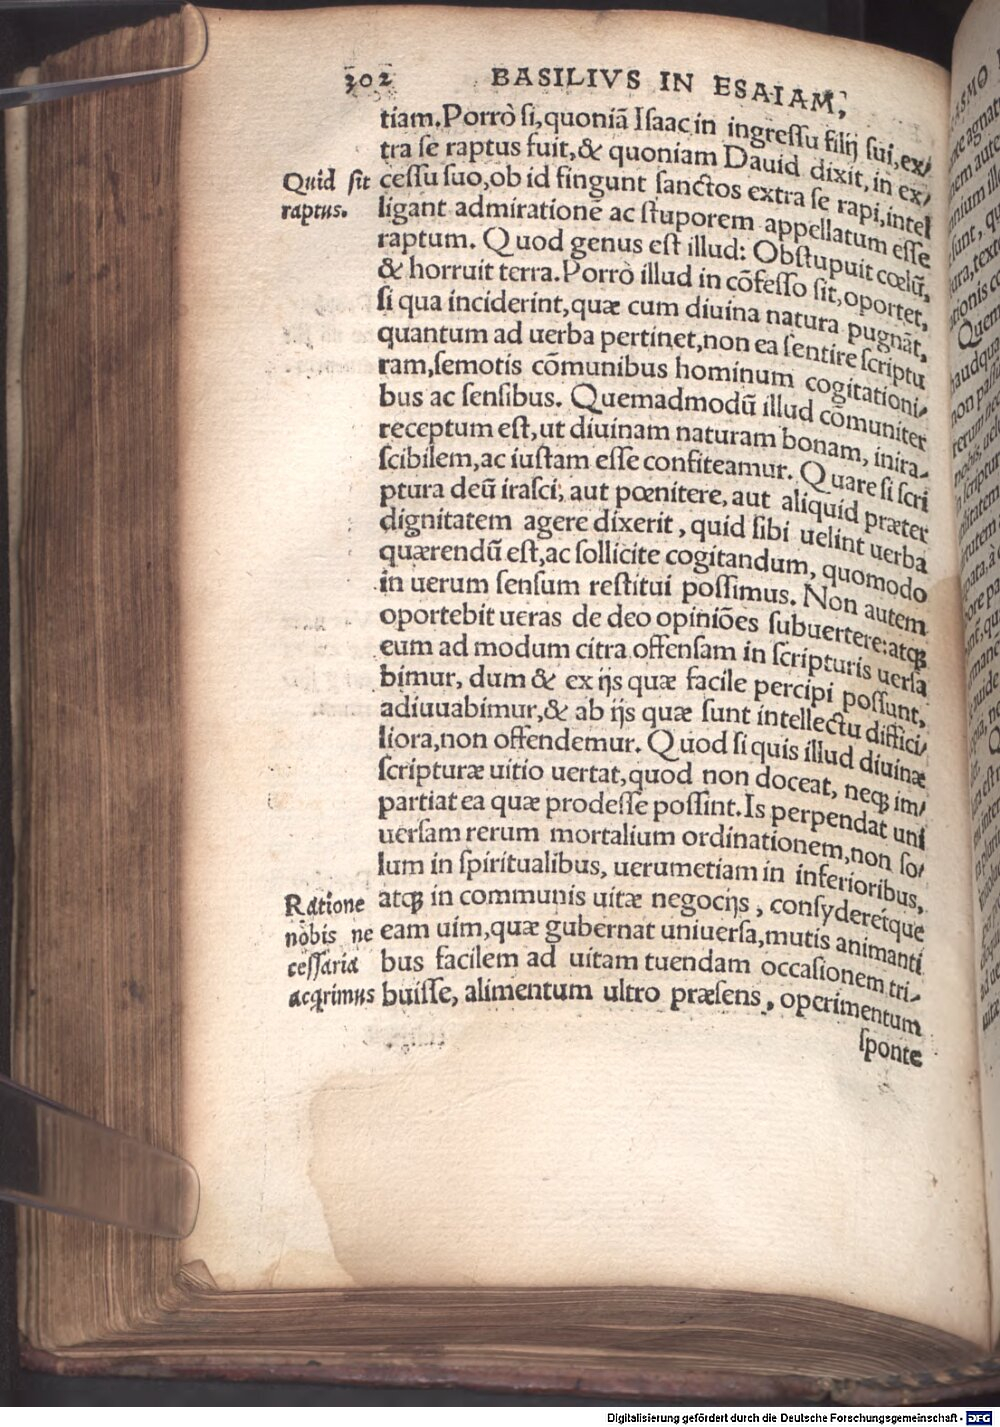 302 BASILIVS IN ESAIAM,
tiam. Porrò si, quoniã Isaac in ingressu filij sui, ex/
tra se raptus fuit, & quoniam Dauid dixit, in ex/
Quid sit
raptus.
cessu suo, ob id fingunt sanctos extra se rapi, intel
ligant admirationẽ ac stuporem appellatum esse
raptum. Quod genus est illud: Obstupuit cœlũ,
& horruit terra. Porrò illud in cõfesso sit, oportet,
si qua inciderint, quæ cum diuina natura pugnãt,
quantum ad uerba pertinet, non ea sentire scriptu
ram, semotis cõmunibus hominum cogitationi/
bus ac sensibus. Quemadmodũ illud cõmuniter
receptum est, ut diuinam naturam bonam, inira/
scibilem, ac iustam esse confiteamur. Quare si scri
ptura deũ irasci, aut pœnitere, aut aliquid præter
dignitatem agere dixerit, quid sibi uelint uerba
quærendũ est, ac sollicite cogitandum, quomodo
in uerum sensum restitui possimus. Non autem
oportebit ueras de deo opiniões subuertere: atqꝫ
eum ad modum citra offensam in scripturis uersa
bimur, dum & ex ijs quæ facile percipi possunt,
adiuuabimur, & ab ijs quæ sunt intellectu diffici/
liora, non offendemur. Quod si quis illud diuinæ
scripturæ uitio uertat, quod non doceat, neqꝫ im/
partiat ea quæ prodesse possint. Is perpendat uni
uersam rerum mortalium ordinationem, non so/
lum in spiritualibus, uerumetiam in inferioribus,
Ratione
nobis ne
cessaria
acqrimus
atqꝫ in communis uitæ negocijs, consyderetque
eam uim, quæ gubernat uniuersa, mutis animanti
bus facilem ad uitam tuendam occasionem tri/
buisse, alimentum ultro præsens, operimentum
sponte
Digitalisierung gefördert durch die Deutsche Forschungsgemeinschaft - DFG